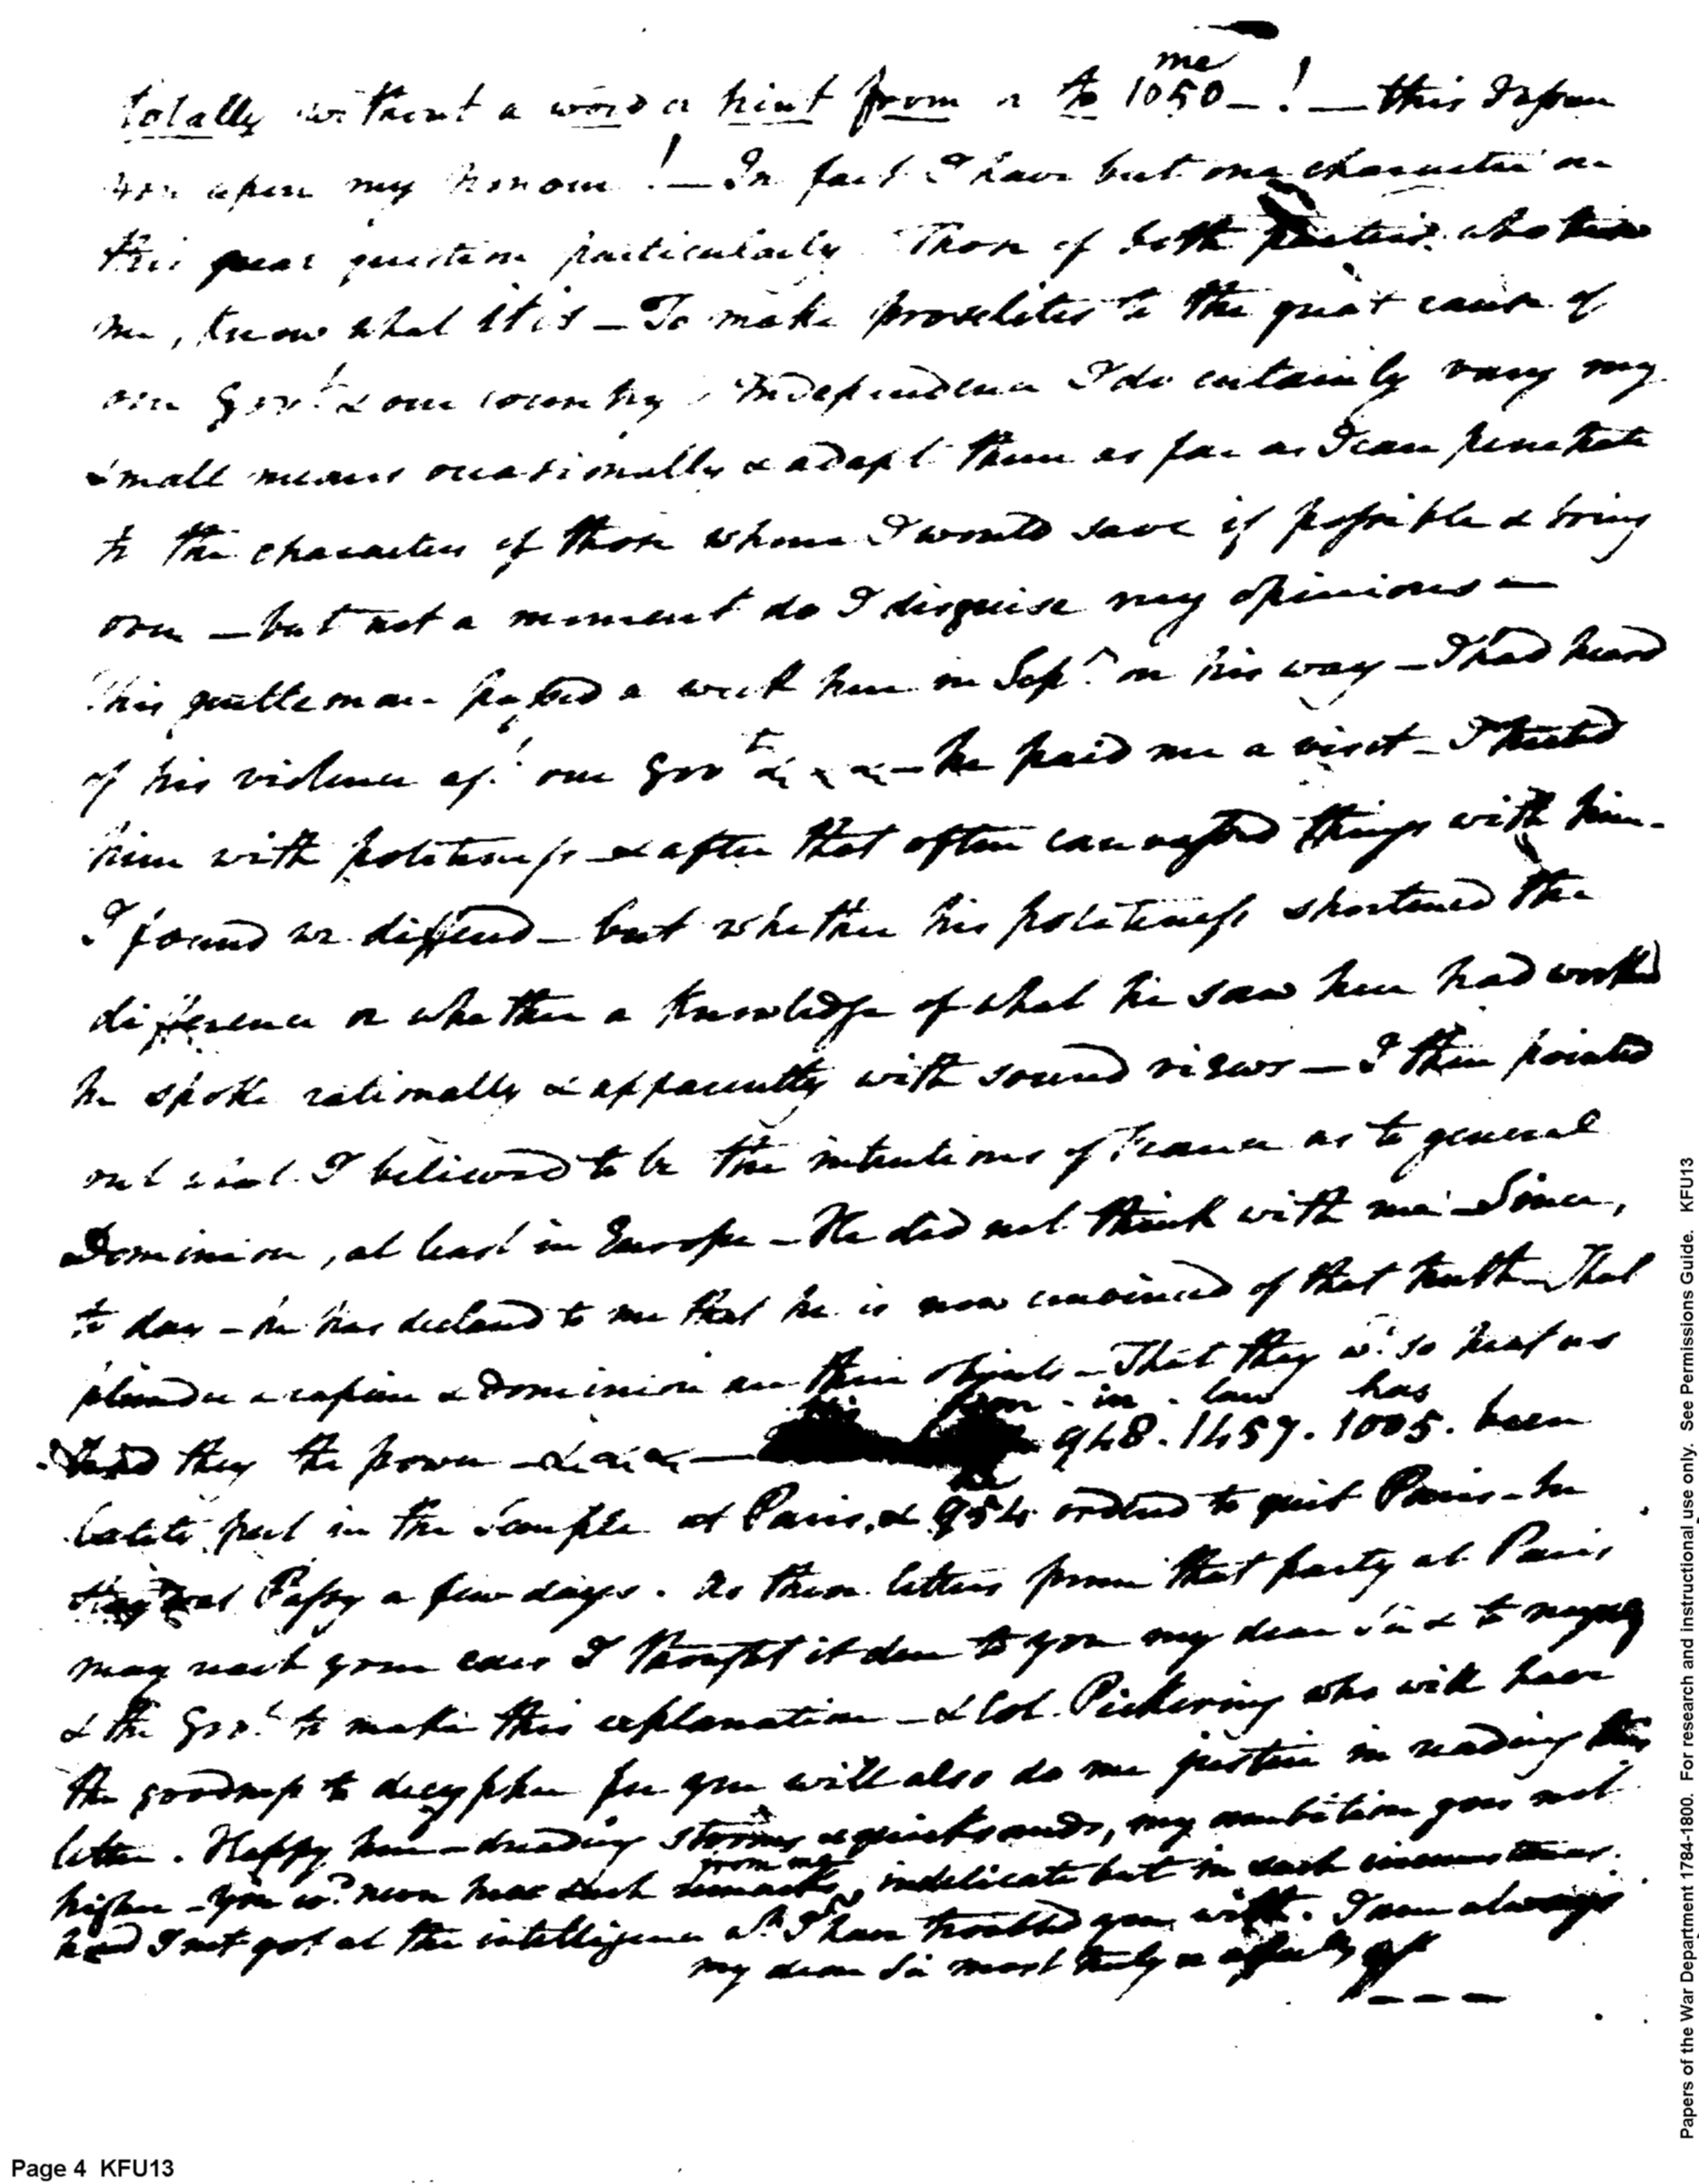 me
totally without a word or hint from or to 1050 — ! — this I assure
you upon my honour ! — In fact I have but one character on
this great question particularly Those of both parties who know
me, know what it is — To make proselites to the great cause of
our Govt. & our country's Independence I do certainly vary my
small means occasionally & adapt them as far as I can penetrate
to the characters of those whom I would save if possible & bring
over — but not a moment do I disguise my opinions —
This gentleman passed a week here in Sept. on his way — I had heard
of his violence agt. our Govt. &&& — he paid me a visit — I treated
him with politeness — & after that often canvassed things with him —
I found we differed — but whether his politeness shortened the
difference or whether a knowledge of what he saw here had worked
he spoke rationally & apparently with sound views — I then pointed
out what I believed to be the intentions of France as to general
Dominion, at least in Europe — He did not think with me — Since,
to day — he has declared to me that he is now convinced of that truth — That
plunder & rapine & Dominion are their objects — That they wd. so treat us
son - in - law has
had they the power — &&& — 948 . 1457 . 1005 . been
he
lately put in the Temple at Paris, & 954 ordered to quit Paris — he
at Passy a few days . As these letters from that party at Paris
may reach your ears I thought it due to you my dear Sir & to myself
& the Govt. to make this explanation — & Col. Pickering who will have
the goodness to decypher for you will also do me justice in reading this
letter . Happy here — dreading storms & quicksands, my ambition goes not
from me
higher — You wd. never hear such remarks indelicate but in such circumstances .
had I not got at the intelligence wh. I have troubled you with . I am always
my dear Sir most truly &